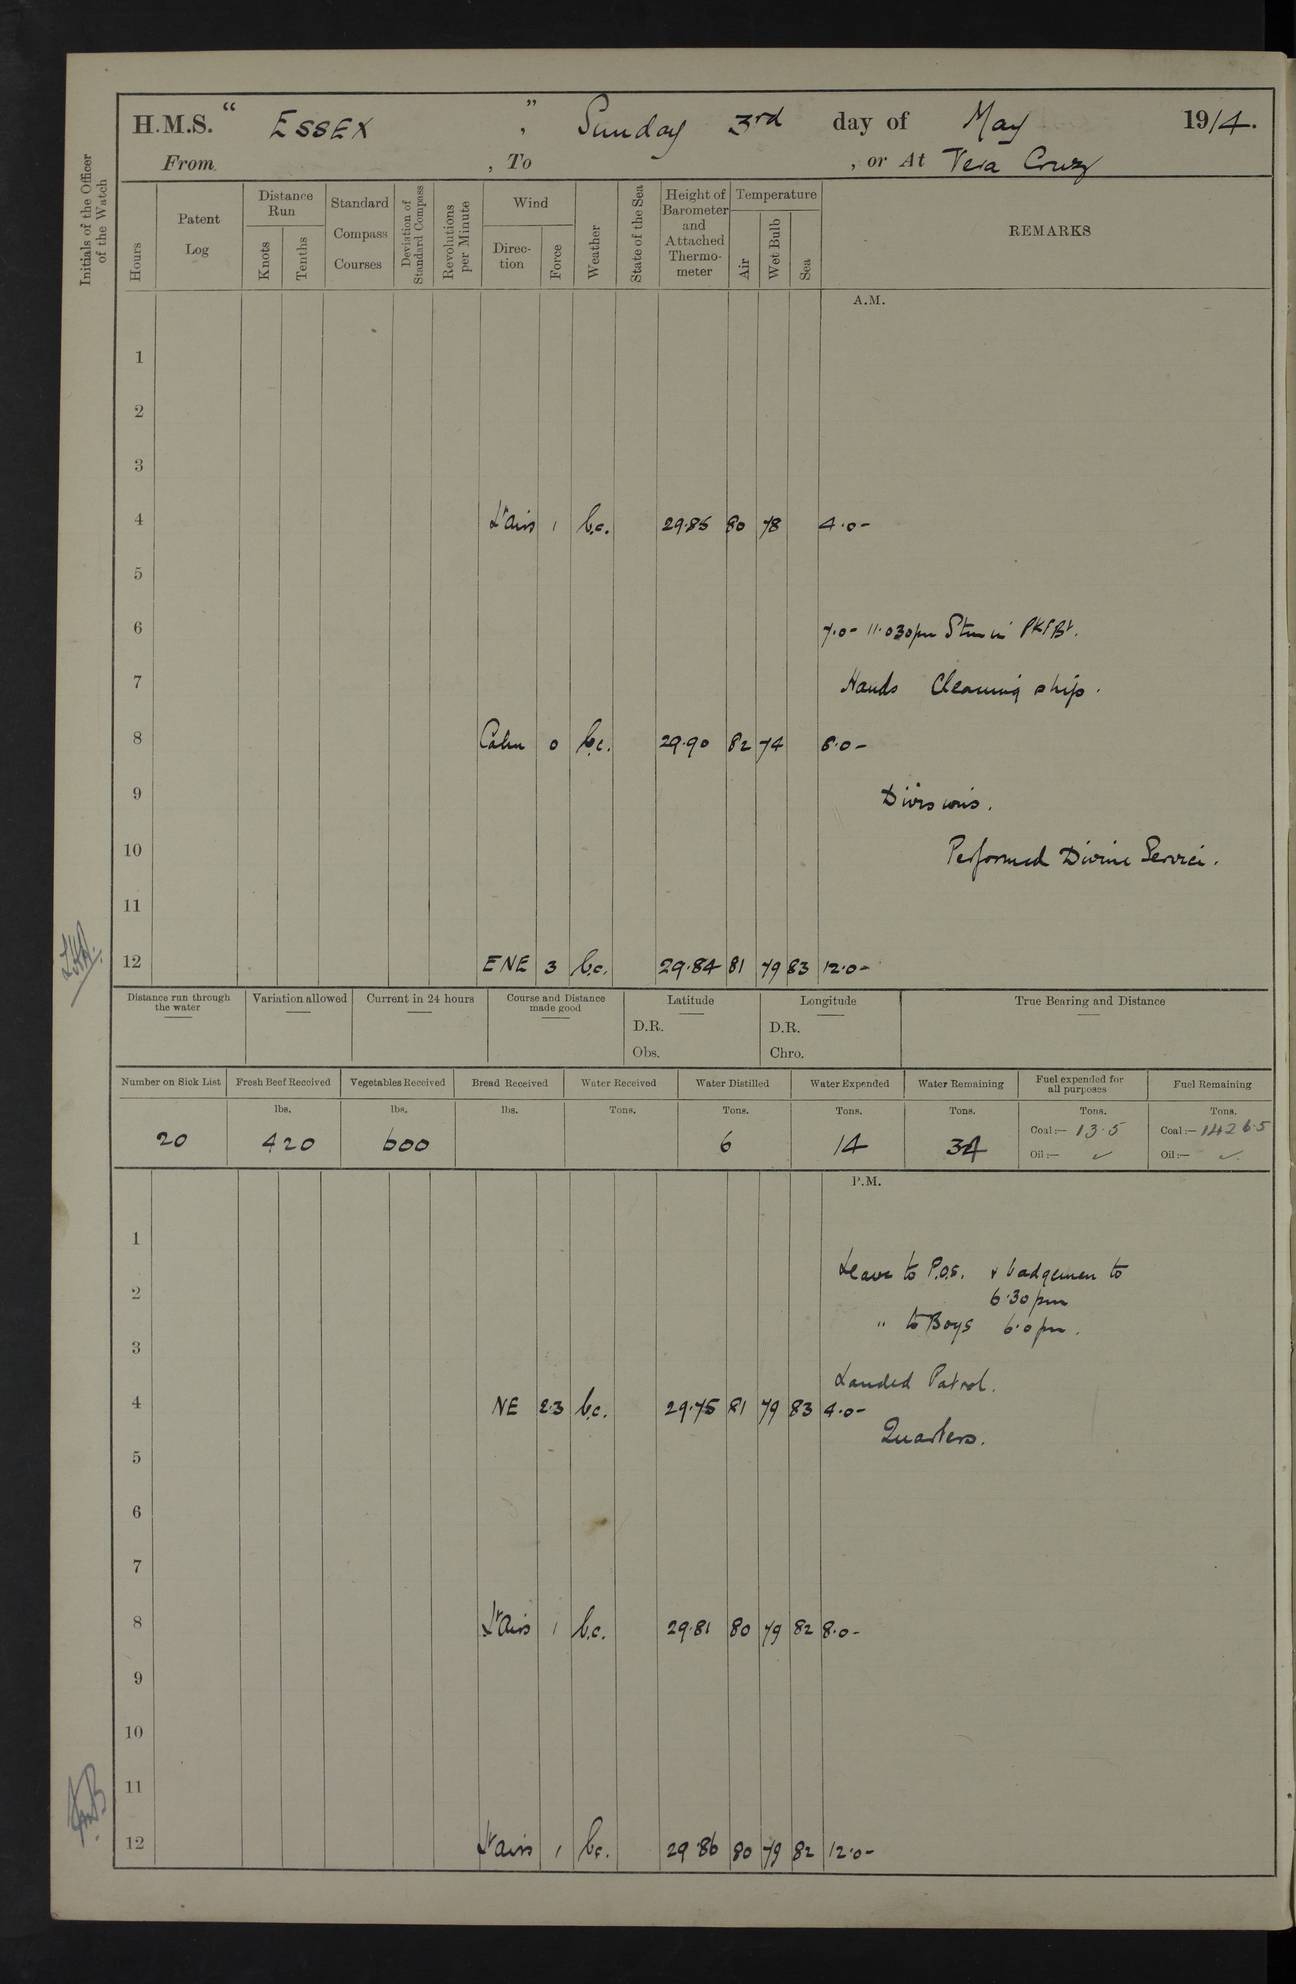 H.M.S. " ESSEX ", Sunday 3rd day of May 1914.
From , To , or At Vera Cruz
Initials of the Officer of the Watch
Hours
Patent Log
Distance Run
Knots
Tenths
Standard Compass Courses
Deviation of Standard Compass
Revolutions per Minute
Wind
Direction
Force
Weather
State of the Sea
Height of Barometer and Attached Thermometer
Temperature
Air
Wet Bulb
Sea
REMARKS
A.M.
1
2
3
4 Lt airs 1 b.c. 29.85 80 78 4.0-
5
6
7.0-
Hands Cleaning ship.
7
8 Calm 0 b.c. 29.90 82 74 8.0-
9
Divisions.
10
Performed Divine Service.
11
12 ENE 3 b.c. 29.84 81 79 83 12.0-
Distance run through the water
Variation allowed
Current in 24 hours
Course and Distance made good
Latitude
D.R.
Obs.
Longitude
D.R.
Chro.
True Bearing and Distance
Number on Sick List
20
Fresh Beef Received
lbs.
420
Vegetables Received
lbs.
600
Bread Received
lbs.
Water Received
Tons.
Water Distilled
Tons.
6
Water Expended
Tons.
14
Water Remaining
Tons.
34
Fuel expended for all purposes
Tons.
Coal:— 13.5
Oil:— ✓
Fuel Remaining
Tons.
Coal:— 1426.5
Oil:— ✓
P.M.
1
Leave to P.O.s. & badgemen to
6.30 pm
2
" to Boys 6.0 pm.
3
Landed Patrol.
4 NE 2.3 b.c. 29.75 81 79 83 4.0-
Quarters.
5
6
7
8 Lt airs 1 b.c. 29.81 80 79 82 8.0-
9
10
11
12 Lt airs 1 b.c. 29 86 80 79 82 12.0-